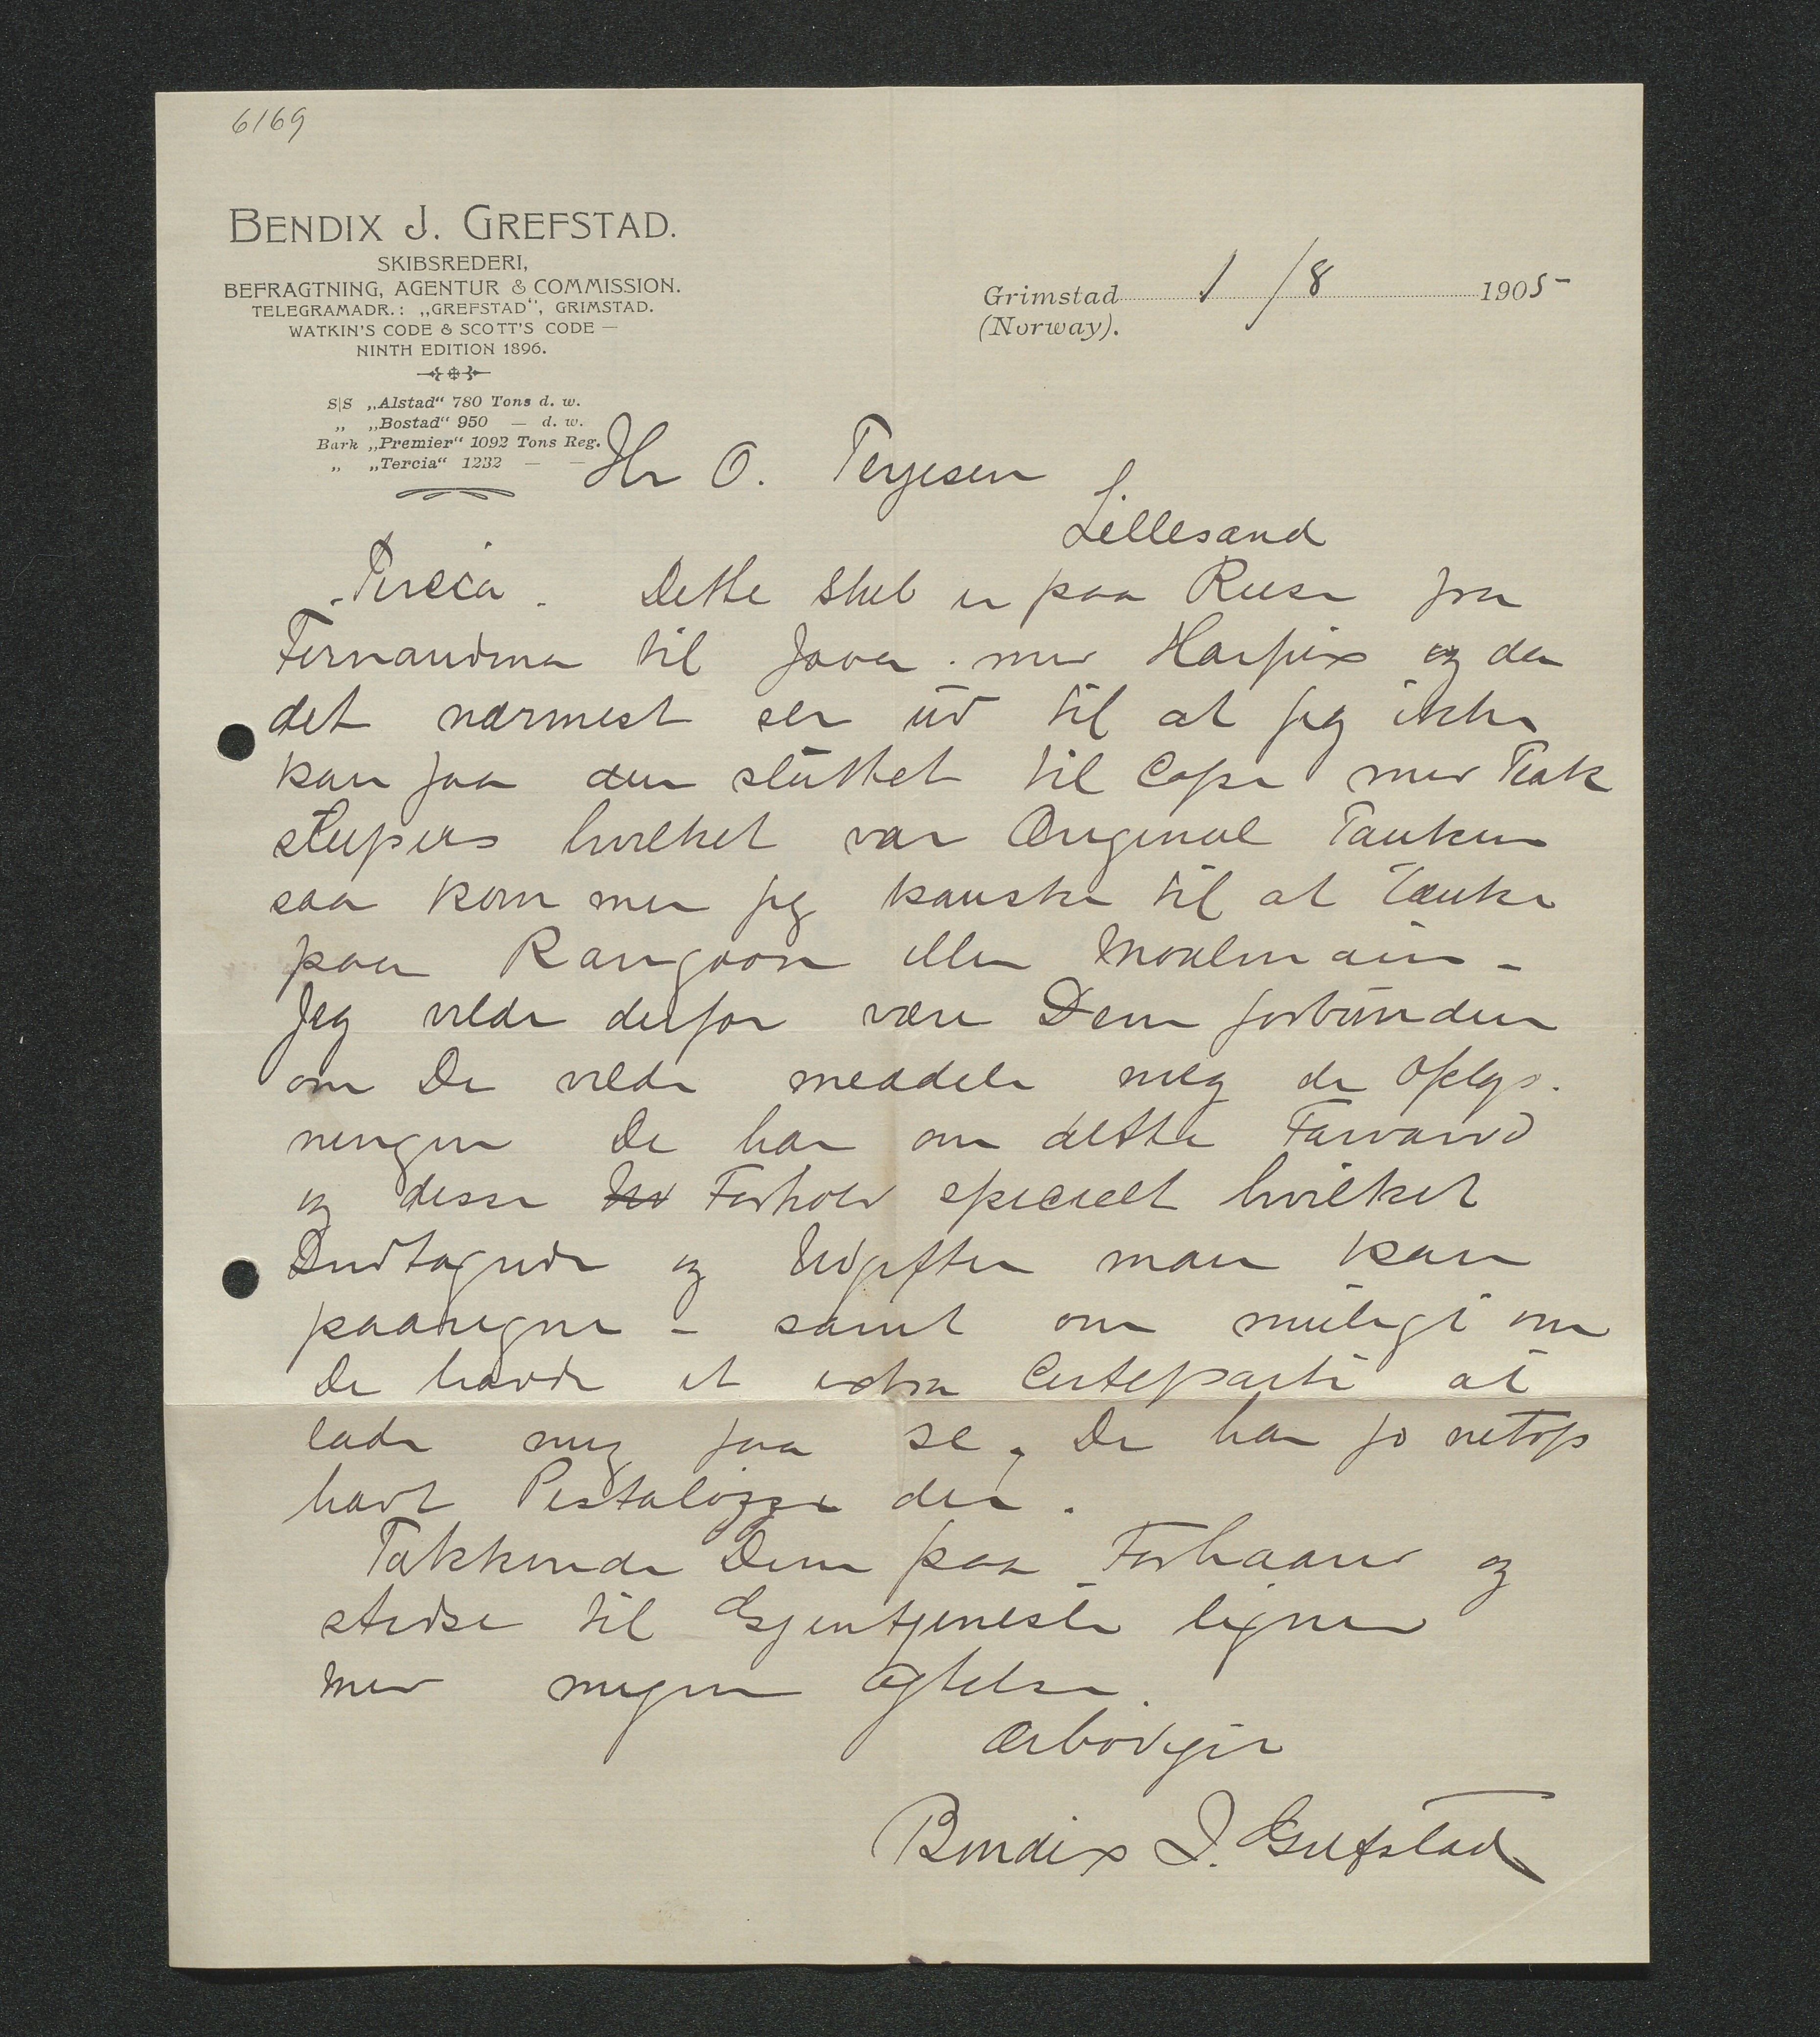 6169
BENDIX J. GREFSTAD.
SKIBSREDERI,
BEFRAGTNING, AGENTUR & COMMISSION.
TELEGRAMADR.: „GREFSTAD“, GRIMSTAD.
WATKIN'S CODE & SCOTT'S CODE —
NINTH EDITION 1896.
S|S „Alstad“ 780 Tons d. w.
„ „Bostad“ 950 — d. w.
Bark „Premier“ 1092 Tons Reg.
„ „Tercia“ 1232 — —
Grimstad 1/8 1905
(Norway).
Hr O. Terjesen
Lillesand
"Tercia". Dette Skib er paa Reise fra
Fernandina til Java med Harpix og da
det nærmest ser ud til at jeg ikke
kan faa den sluttet til Cape med Teak
sleepers hvilket var Original Tanken
saa kommer jeg kanske til at tænke
paa Rangoon eller Moulmain -
Jeg vilde derfor være Dem forbunden
om De vilde meddele mig de Oplys-
ninger De har om dette Farvand
og disse Forhold specielt hvilket
Indtagende og Udgifter man kan
paaregne - samt om muligt om
De havde et extra Certeparti at
lade mig faa se, De har jo netop
havt Pestalozzi der.
Takkende Dem paa Forhaand og
stedse til Gjentjeneste tegner
med megen Agtelse.
ærbødigst
Bendix J. Grefstad